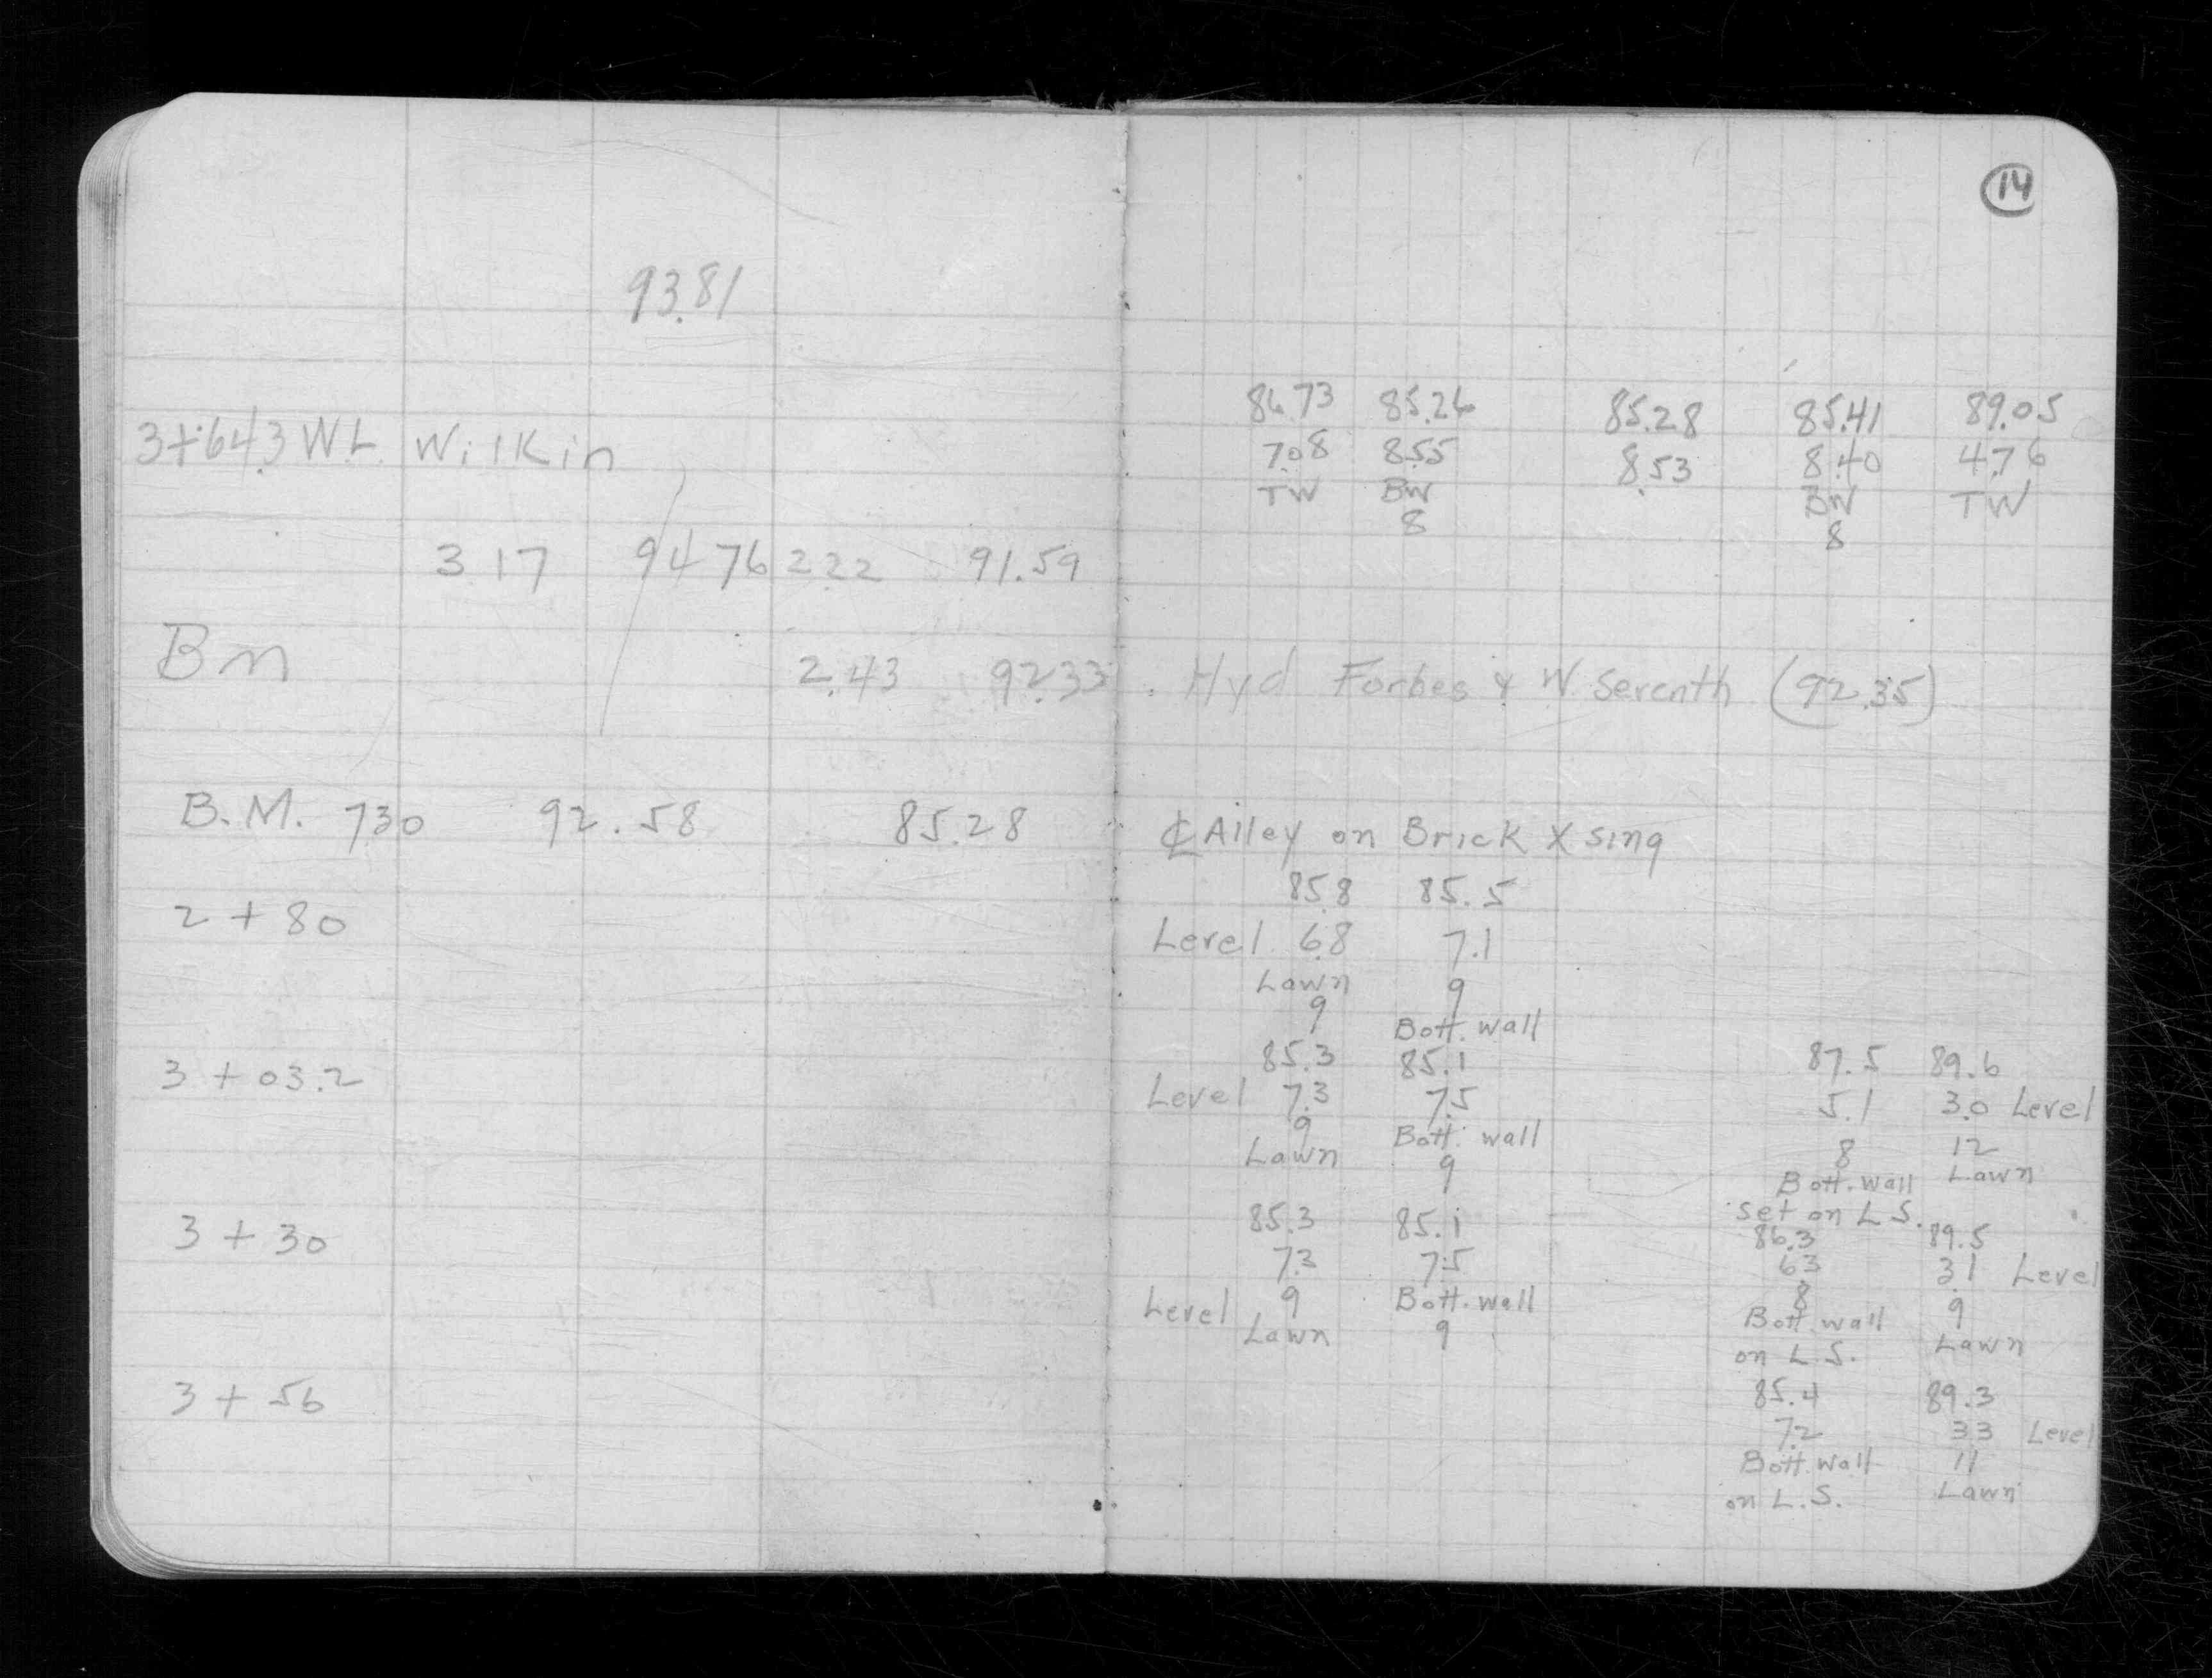 14
93.81
86.73 85.26 85.28 85.41 89.05
3+64.3 W.L. Wilkin 7.08 8.55 8.53 8.40 4.76
TW BW BW TW
8 8
3.17 94.76 2.22 91.59
Bm 2.43 92.33 Hyd Forbes & W. Seventh (92.35)
B.M. 7.30 92.58 85.28 ℄ Alley on Brick X sing
85.8 85.5
2 + 80 Level 6.8 7.1
Lawn 9
9 Bott. wall
85.3 85.1 87.5 89.6
3 + 03.2 Level 7.3 7.5 5.1 3.0 Level
9 Bott. wall 8 12
Lawn 9 Bott. wall Lawn
set on L.S.
85.3 85.1 86.3 89.5
3 + 30 7.3 7.5 6.3 3.1 Level
Level 9 Bott. wall 8 9
Lawn 9 Bott. wall Lawn
on L.S.
3 + 56 85.4 89.3
7.2 3.3 Level
Bott. wall 11
on L.S. Lawn